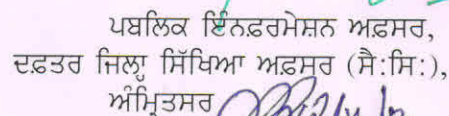 ਪਬਲਿਕ ਇੰਨਫ਼ਰਮੇਸ਼ਨ ਅਫ਼ਸਰ,
ਦਫ਼ਤਰ ਜਿਲ੍ਹਾ ਸਿੱਖਿਆ ਅਫ਼ਸਰ (ਸੈ:ਸਿ:),
ਅੰਮ੍ਰਿਤਸਰ